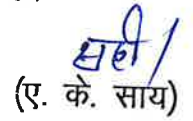 सही/
(ए. के. साय)